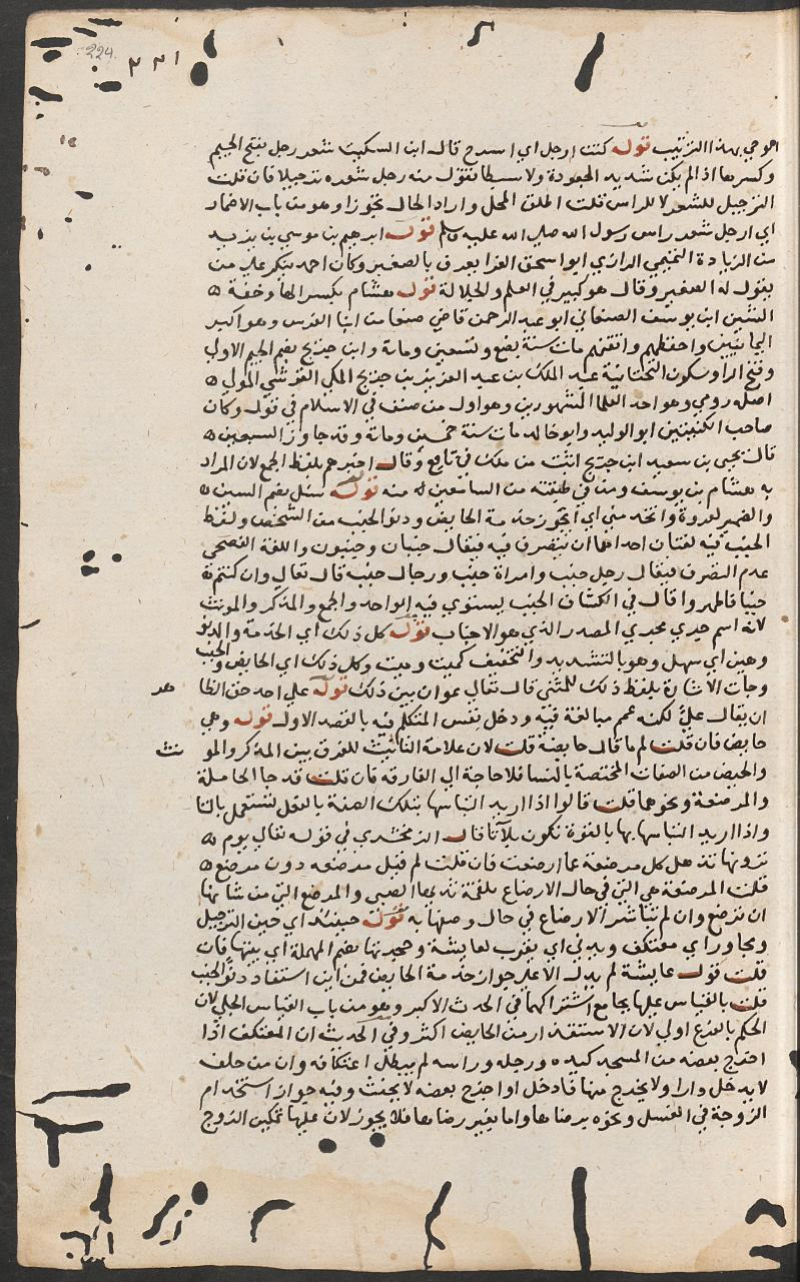 224
٢٢١
احوجي بهذا الترتيب قوله كنت ارجل اي اسرح قال ابن السكيت شعر رجل بفتح الجيم
وكسرها اذا لم يكن شديد الجعودة ولا سبطا تقول منه رجل شعره ترجيلا فان قلت
الترجيل للشعر لا للراس قلت اطلق المحل واراد الحال تجوزا وهو من باب الاضمار
اي ارجل شعر راس رسول الله صلي الله عليه وسلم قوله ابرهيم بن موسي بن يزيد
من الزيادة التميمي الرازي ابو اسحق الفرا يعرف بالصغير وكان احمد ينكر علي من
يقول له الصغير وقال هو كبير في العلم والجلالة قوله هشام بكسر الها وخفة
الشين ابن يوسف الصنعاني ابو عبد الرحمن قاضي صنعا من ابنا الفرس وهو اكبر
اليمانيين واحفظهم واتقنهم مات سنة سبع وتسعين وماية وابن جريج بضم الجيم الاولي
وفتح الرا وسكون التحتانية عبد الملك بن عبد العزيز بن جريج المكي القرشي المولي
اصله رومي وهو احد العلما المشهورين وهو اول من صنف في الاسلام في قول وكان
صاحب الكنيتين ابو الوليد وابو خالد مات سنة خمسين وماية وقد جاوز السبعين
قال يحيي بن سعيد ابن جريج اثبت من ملك في نافع وقال اخبرهم بلفظ الجمع لان المراد
به هشام بن يوسف ومن في طبقته من السامعين له منه قوله سئل بضم السين
والضمير لعروة واتخدمني اي ايجوز خدمة الحايض ودنو الجنب من الشخص ولفظ
الجنب فيه لغتان احداهما ان يتصرف فيه فيقال جنبان وجنبون واللغة الفصحي
عدم التصرف فيقال رجل جنب وامراة جنب ورجال جنب قال تعالي وان كنتم
جنبا فاطهروا قال في الكشاف الجنب يستوي فيه الواحد والجمع والمذكر والمونث
لانه اسم جري مجري المصدر الذي هو الاجناب قوله كل ذلك اي الخدمة والدنو
وهين اي سهل وهو بالتشديد والتخفيف كميت وميت وكل ذلك اي الحايض والجنب
وجات الاشارة بلفظ ذلك للمثني قال تعالي عوان بين ذلك قوله علي احد حق الظا
هر
ان يقال علي لكنه عمم مبالغة فيه ودخل نفس المتكلم فيه بالقصد الاول قوله وهي
حايض فان قلت لم ما قال حايضة قلت لان علامة التانيث للفرق بين المذكر والمو
نث
والحيض من الصفات المختصة بالنسا فلا حاجة الي الفارقه فان قلت قد جا الحاملة
والمرضعة ونحوهما قلت قالوا اذا اريد التباسها بتلك الصفة بالفعل تستعمل بالتا
واذا اريد التباسها بها بالقوة تكون بلا تا قال الزمخشري في قوله تعالي يوم
ترونها تذهل كل مرضعة عما ارضعت فان قلت لم قيل مرضعه دون مرضع
قلت المرضعة هي التي في حال الارضاع ملقمة ثديها الصبي والمرضع التي من شانها
ان ترضع وان لم تباشر الارضاع في حال وصفها به قوله حينئذ اي حين الترجيل
ومجاور اي معتكف ويدني اي يقرب لعايشة وحجرتها بضم المهملة اي بيتها فان
قلت قول عايشة لم يدل الا علي جواز خدمة الحايض فمن اين استفاد دنو الجنب
قلت بالقياس عليها بجامع اشتراكهما في الحدث الاكبر وهو من باب القياس الجلي لان
الحكم بالفرع اولي لان الاستقذار من الحايض اكثر وفي الحديث ان المعتكف اذا
اخرج بعضه من المسجد كيده ورجله وراسه لم يبطل اعتكافه وان من حلف
لا يدخل دارا ولا يخرج منها فادخل او اخرج بعضه لا يحنث وفيه جواز استخدام
الزوجة في الغسل ونحوه برضاها واما بغير رضاها فلا يجوز لان عليها تمكين الزوج